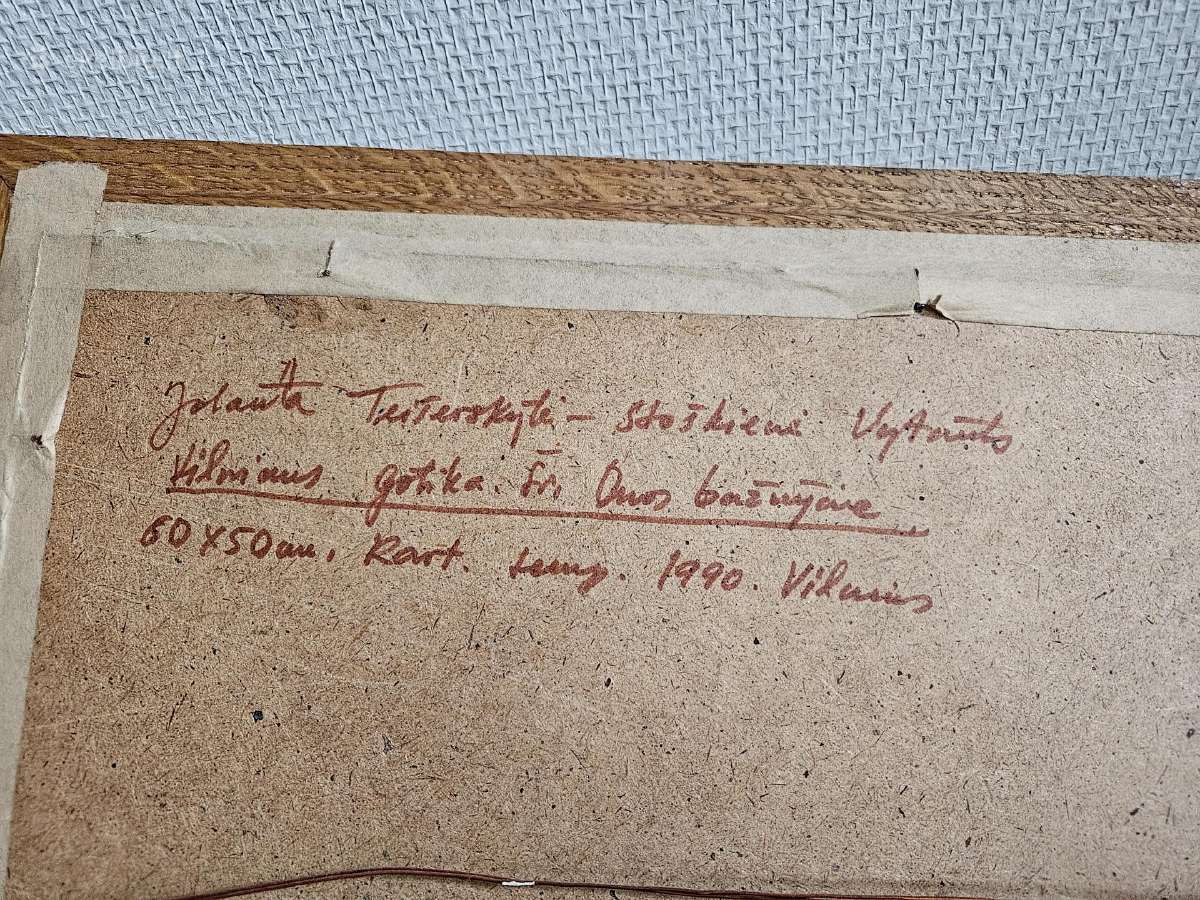 Jolanta Teiterskytė - Stoškienė Vytauto
Vilniaus gotika. Šv. Onos bažnyčia
60x50cm. Kart. temp. 1990. Vilnius